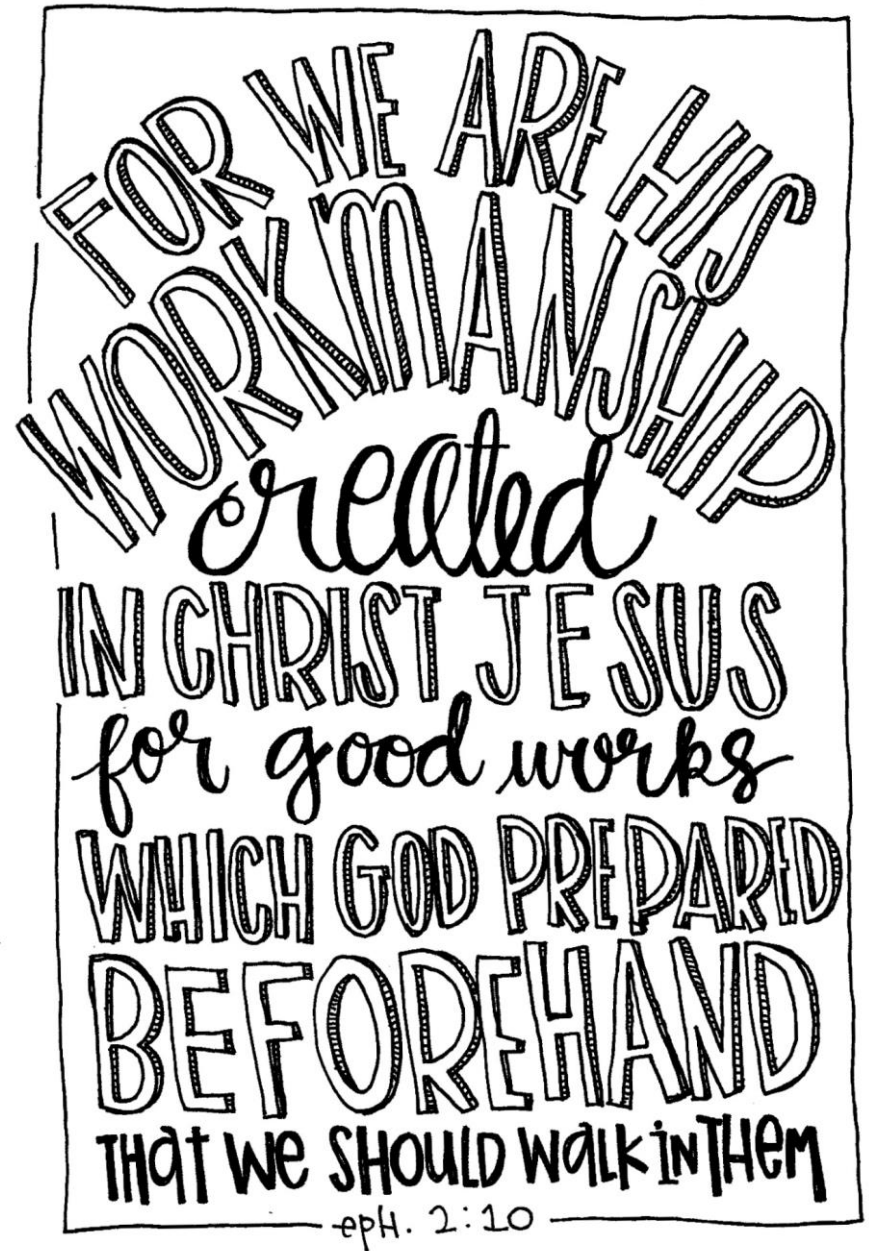 FOR WE ARE HIS
WORKMANSHIP
created
IN CHRIST JESUS
for good works
WHICH GOD PREPARED
BEFOREHAND
THat We SHOULD WalK iN THeM
epH. 2:10